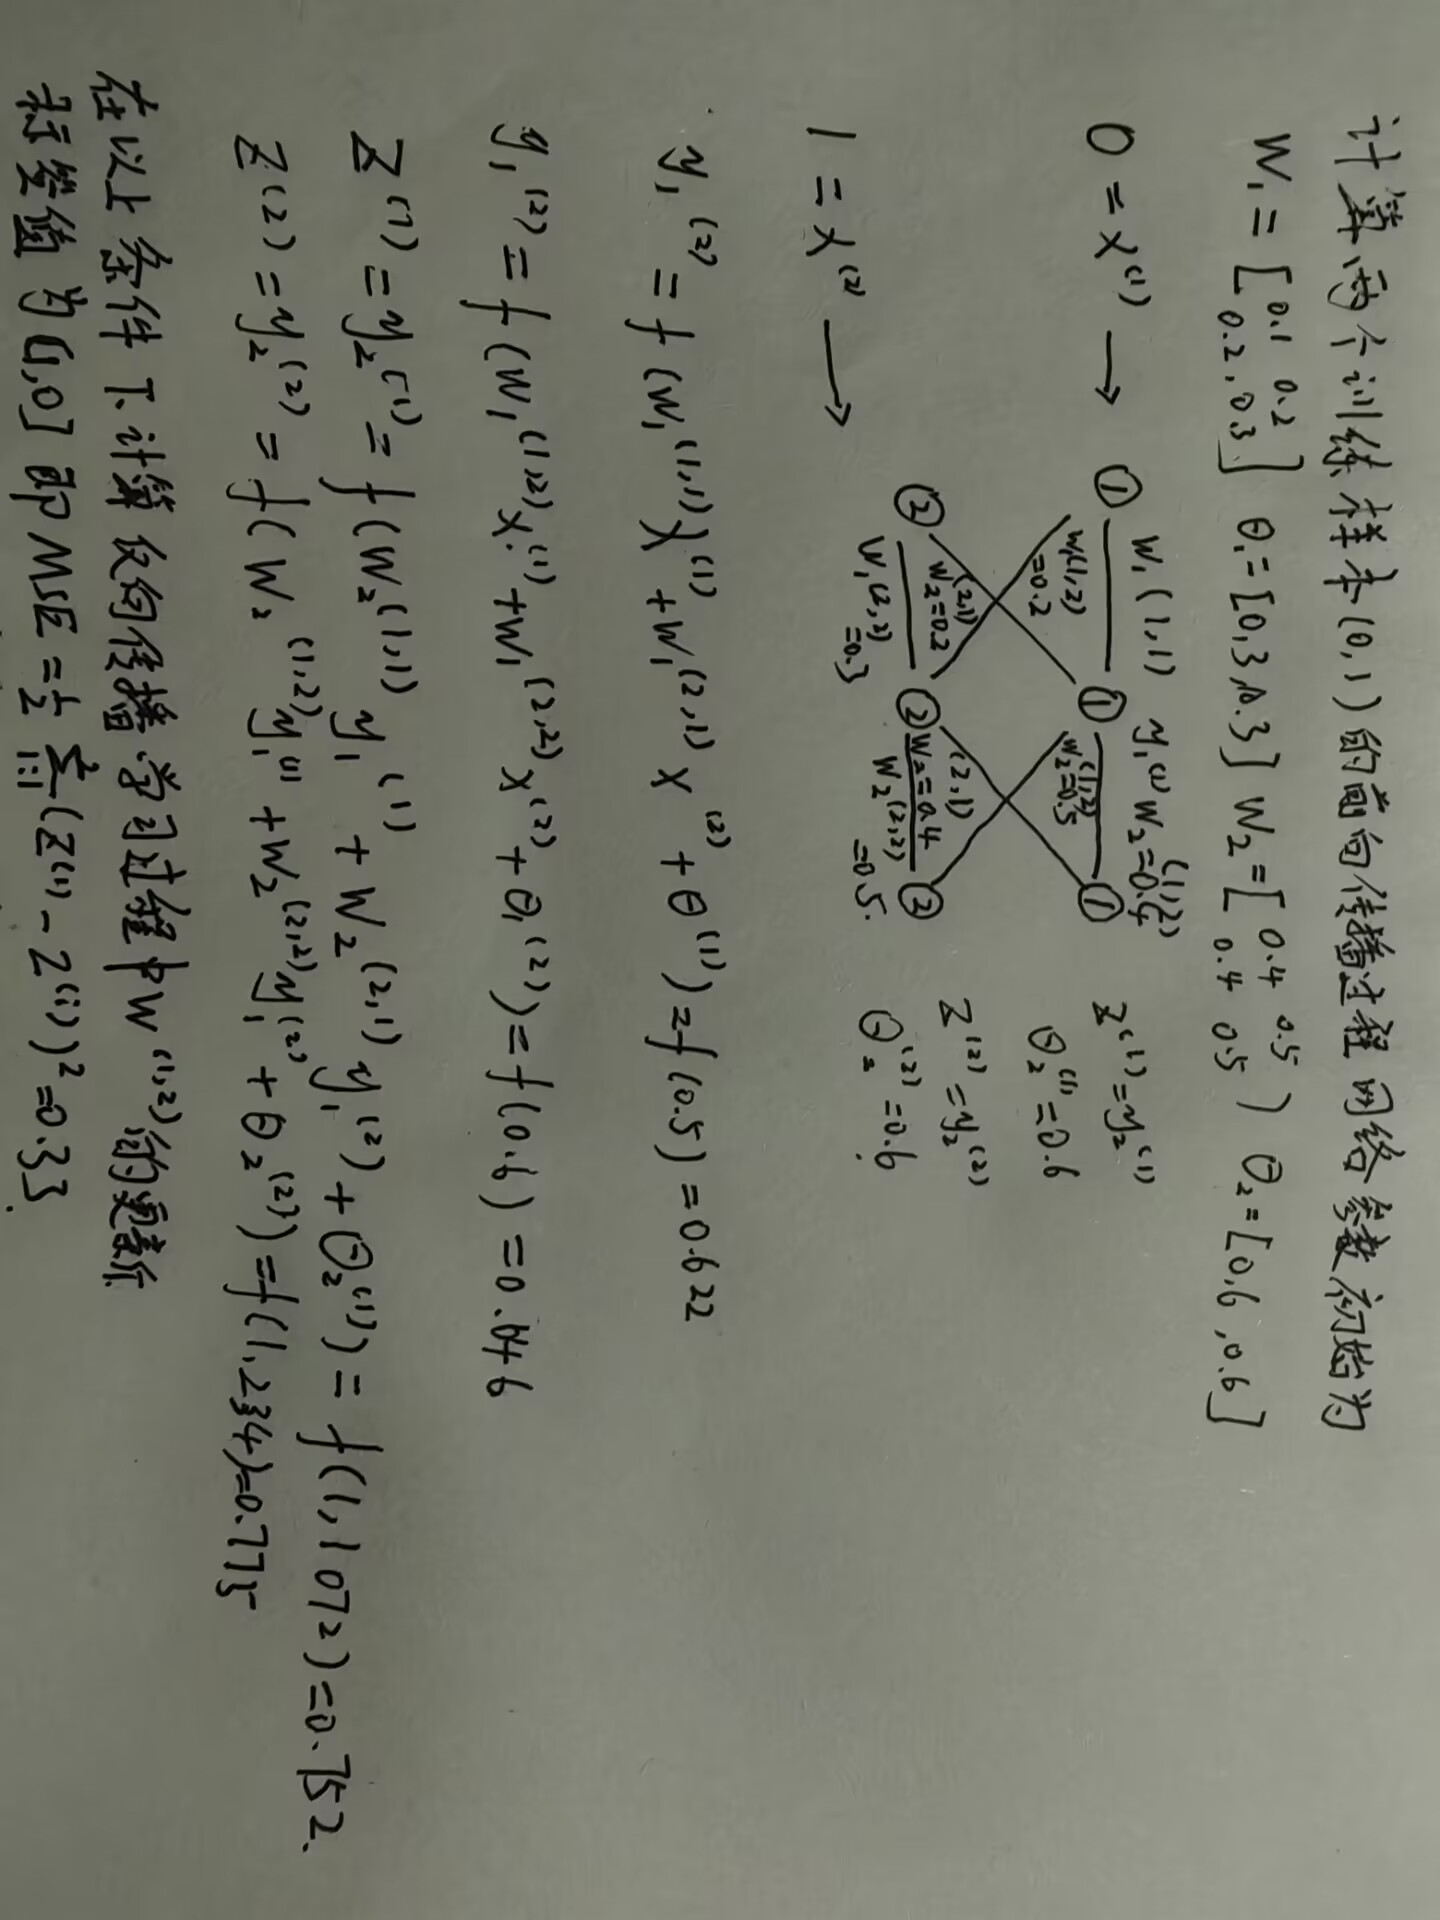 计算两个训练样本(0,1)的前向传播过程网络参数初始为
W₁=[0.1 0.2 0.2,0.3] θ₁=[0,3,0.3] W₂=[0.4 0.5 0.4 0.5) θ₂=[0,6,0.6]
0=x⁽¹⁾→ ① W₁(1,1) ① y₁⁽¹⁾ W₂⁽¹,²⁾=0.4 ① Z⁽¹⁾=y₂⁽¹⁾
W₁(1,2)=0.2 W₂⁽¹,²⁾=0.5 θ₂⁽¹⁾=0.6
W₂⁽²,¹⁾=0.2 W₂⁽²,¹⁾=0.4 Z⁽²⁾=y₂⁽²⁾
1=x⁽²⁾→ ② W₁(2,2)=0.3 ② W₂⁽²,²⁾=0.5. ② θ₂⁽²⁾=0.6
y₁⁽²⁾=f(W₁⁽¹,¹⁾x⁽¹⁾+W₁⁽²,¹⁾x⁽²⁾+θ⁽¹⁾)=f(0.5)=0.622
y₁⁽²⁾=f(W₁⁽¹,²⁾x⁽¹⁾+W₁⁽²,²⁾x⁽²⁾+θ₁⁽²⁾)=f(0.6)=0.646
Z⁽¹⁾=y₂⁽¹⁾=f(W₂⁽¹,¹⁾y₁⁽¹⁾+W₂⁽²,¹⁾y₁⁽²⁾+θ₂⁽¹⁾)=f(1,1072)=0.752.
Z⁽²⁾=y₂⁽²⁾=f(W₂⁽¹,²⁾y₁⁽¹⁾+W₂⁽²,²⁾y₁⁽²⁾+θ₂⁽²⁾)=f(1,234)=0.775
在以上条件下.计算反向传播学习过程中W⁽¹,²⁾的更新
标签值为(1,0]即MSE=½∑(Z⁽ⁱ⁾-Z⁽ⁱ⁾)²=0.33.